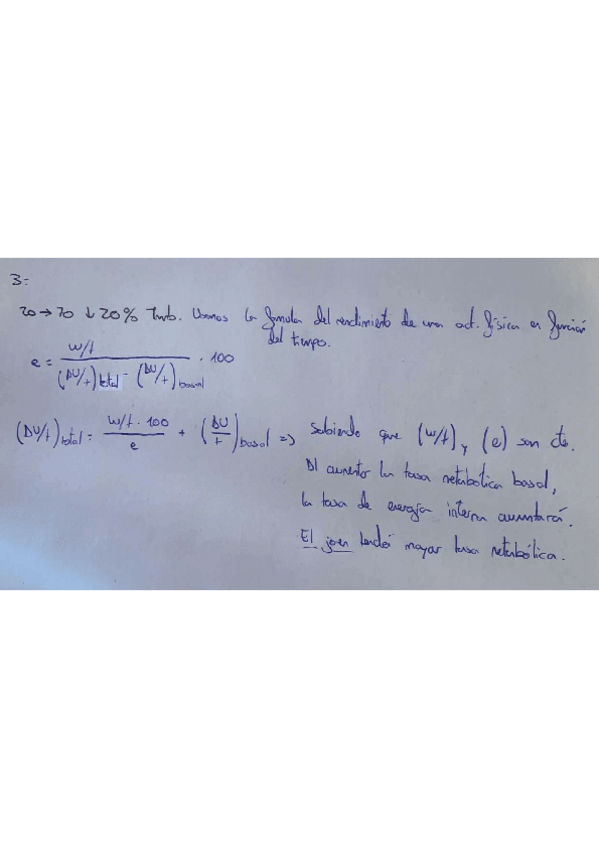 3:
20 → 70 ↓ 20% Tmb. Usamos la fórmula del rendimiento de una act. física en función
del tiempo.
e = (W/t) / ((ΔU/t)total - (ΔU/t)basal) · 100
(ΔU/t)total = (W/t · 100) / e + (ΔU/t)basal => sabiendo que (W/t) y (e) son cte.
Al aumentar la tasa metabólica basal,
la tasa de energía interna aumentará.
El joven tendrá mayor tasa metabólica.